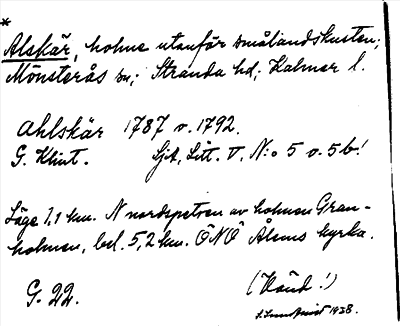 *
Alskär, holme utanför smålandskusten;
Mönsterås sn; Stranda hd; Kalmar l.
Ahlskär 1787 o. 1792.
G. Klint. Sjk, Litt. V, N:o 5 o. 5b!
Läge 1,1 km. N nordspetsen av holmen Gran-
holmen, bel. 5,2 km. ÖNÖ Ålems kyrka.
G. 22. (Känd!)
1938.